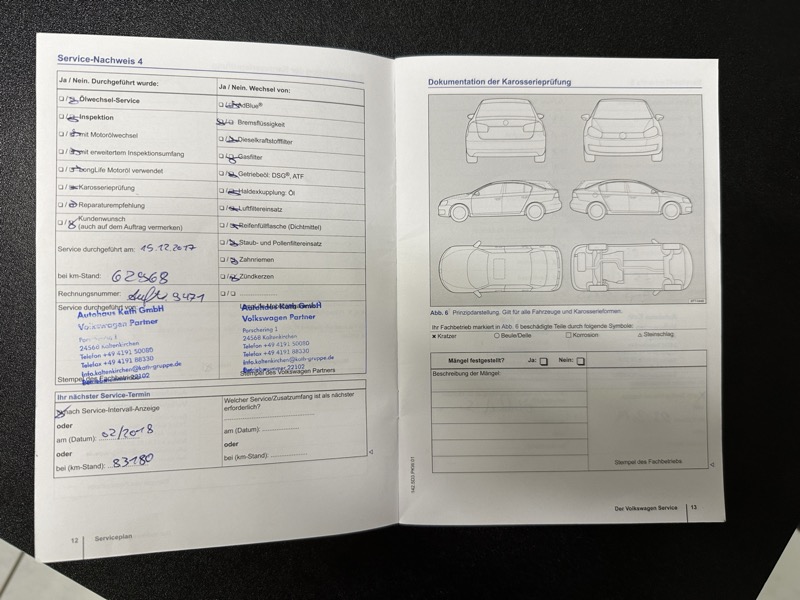 Service-Nachweis 4
Ja / Nein. Durchgeführt wurde:
Ölwechsel-Service
Inspektion
mit Motorölwechsel
mit erweitertem Inspektionsumfang
LongLife Motoröl verwendet
Karosserieprüfung
Reparaturempfehlung
Kundenwunsch
(auch auf dem Auftrag vermerken)
Service durchgeführt am: 15.12.2017
bei km-Stand: 62968
Rechnungsnummer: 3471
Service durchgeführt von:
Autohaus Kath GmbH
Volkswagen Partner
Porschering 1
24568 Kaltenkirchen
Telefon +49 4191 50080
Telefax +49 4191 88330
Info.kaltenkirchen@kath-gruppe.de
Betriebsnummer 22102
Stempel des Fachbetriebs
Ja / Nein. Wechsel von:
AdBlue®
Bremsflüssigkeit
Dieselkraftstofffilter
Gasfilter
Getriebeöl: DSG®, ATF
Haldexkupplung: Öl
Luftfiltereinsatz
Reifenfüllflasche (Dichtmittel)
Staub- und Pollenfiltereinsatz
Zahnriemen
Zündkerzen
Autohaus Kath GmbH
Volkswagen Partner
Porschering 1
24568 Kaltenkirchen
Telefon +49 4191 50080
Telefax +49 4191 88330
Info.kaltenkirchen@kath-gruppe.de
Betriebsnummer 22102
Stempel des Volkswagen Partners
Ihr nächster Service-Termin
nach Service-Intervall-Anzeige
oder
am (Datum): 02/2018
oder
bei (km-Stand): 83180
Welcher Service/Zusatzumfang ist als nächster
erforderlich?
am (Datum):
oder
bei (km-Stand):
12 Serviceplan
Dokumentation der Karosserieprüfung
Abb. 6 Prinzipdarstellung. Gilt für alle Fahrzeuge und Karosserieformen.
Ihr Fachbetrieb markiert in Abb. 6 beschädigte Teile durch folgende Symbole:
Kratzer Beule/Delle Korrosion Steinschlag
Mängel festgestellt? Ja: Nein:
Beschreibung der Mängel:
Stempel des Fachbetriebs
Der Volkswagen Service 13